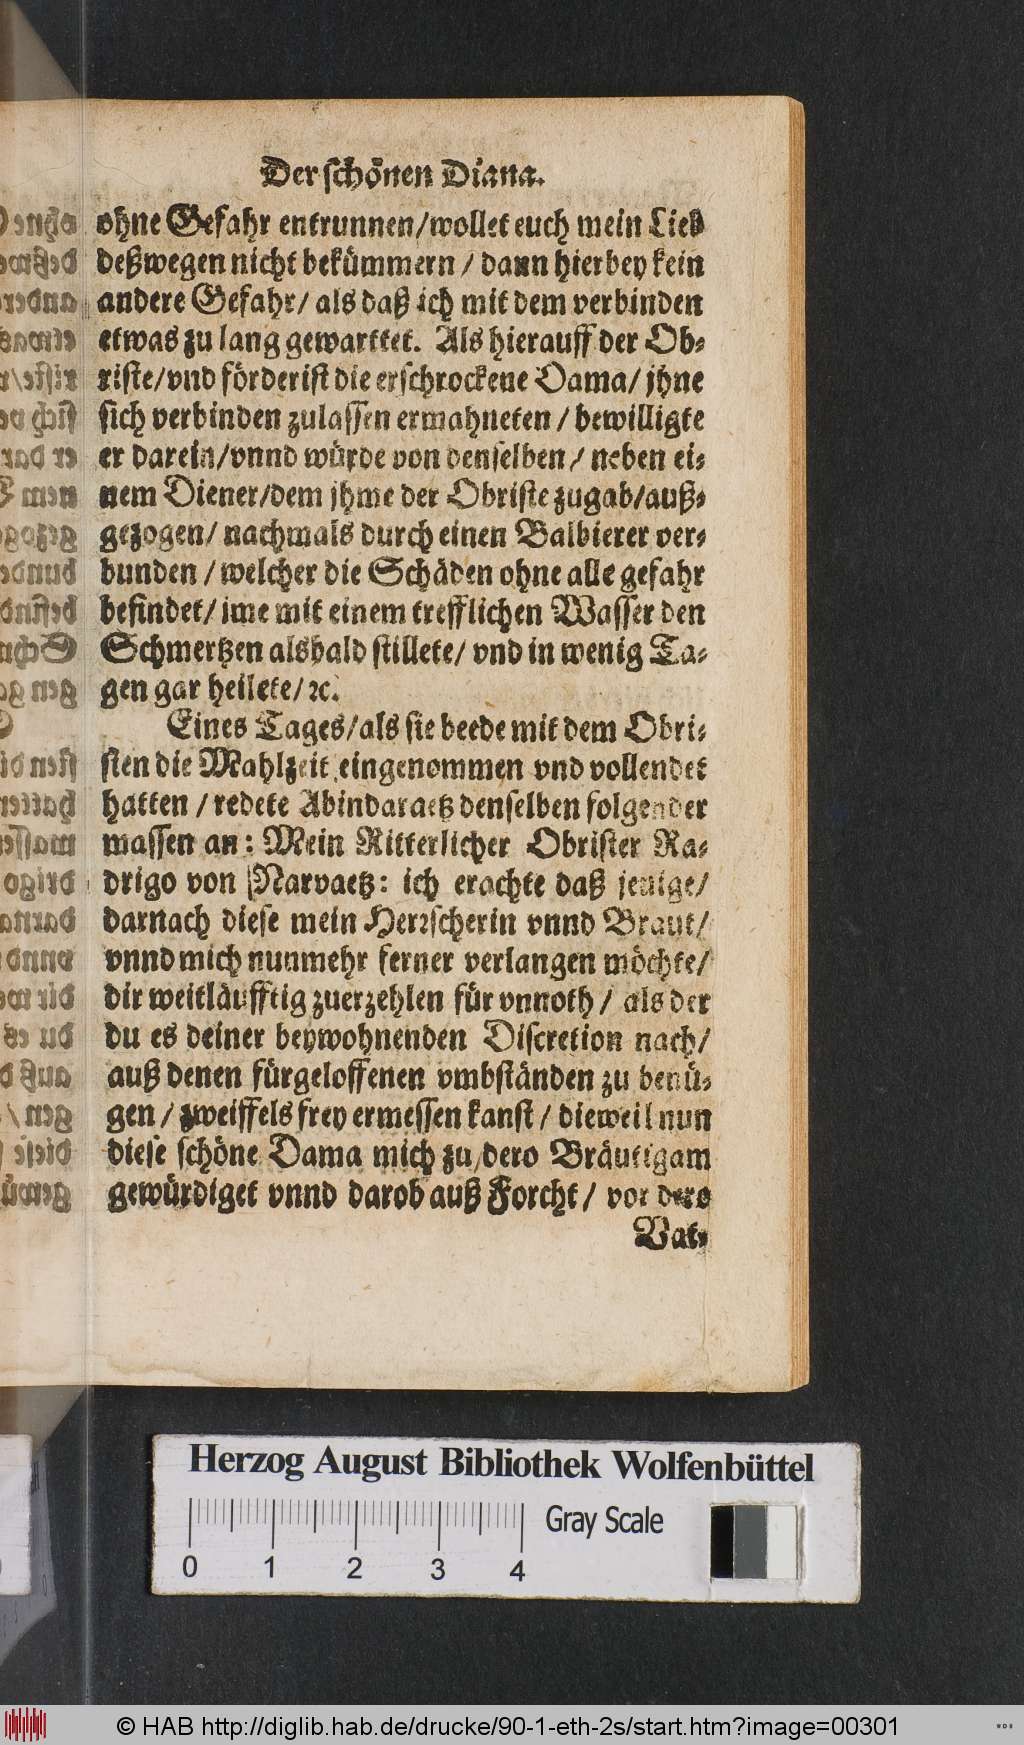 Der schönen Diana.
ohne Gefahr entrunnen/wollet euch mein Lieb
deßwegen nicht bekümmern / dann hierbey kein
andere Gefahr/ als daß ich mit dem verbinden
etwas zu lang gewarttet. Als hierauff der Ob-
riste/vnd förderist die erschrockene Dama/ jhne
sich verbinden zulassen ermahneten / bewilligte
er darein/vnnd würde von denselben / neben ei-
nem Diener/dem jhme der Obriste zugab/auß-
gezogen/ nachmals durch einen Balbierer ver-
bunden / welcher die Schäden ohne alle gefahr
befindet/ jme mit einem trefflichen Wasser den
Schmertzen alsbald stillete/ vnd in wenig Ta-
gen gar heilete/ ꝛc.
Eines Tages/als sie beede mit dem Obri-
sten die Mahlzeit eingenommen vnd vollendet
hatten / redete Abindaraetz denselben folgender
massen an: Mein Ritterlicher Obrister Ra-
drigo von Narvaetz: ich erachte daß jenige/
darnach diese mein Herrscherin vnnd Braut/
vnnd mich nunmehr ferner verlangen möchte/
dir weitläufftig zuerzehlen für vnnoth / als der
du es deiner beywohnenden Discretion nach/
auß denen fürgeloffenen vmbständen zu benü-
gen / zweiffels frey ermessen kanst / dieweil nun
diese schöne Dama mich zu dero Bräutigam
gewürdiget vnnd darob auß Forcht / vor dero
Vat-
Herzog August Bibliothek Wolfenbüttel
Gray Scale
0 1 2 3 4
© HAB http://diglib.hab.de/drucke/90-1-eth-2s/start.htm?image=00301